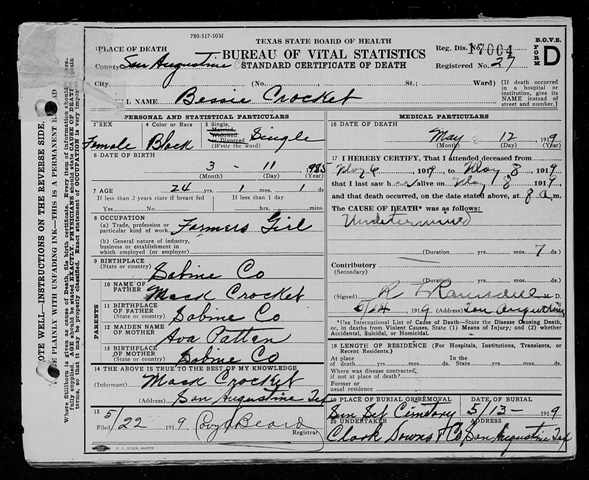 TEXAS STATE BOARD OF HEALTH
BUREAU OF VITAL STATISTICS
STANDARD CERTIFICATE OF DEATH
Reg. Dis. No. 17004
Registered No. 27
B.O.V.S. FORM D
PLACE OF DEATH
County San Augustine
City (No. St; Ward)
(If death occurred in a hospital or institution, give its NAME instead of street and number.)
NAME Bessie Crocket
PERSONAL AND STATISTICAL PARTICULARS
3 SEX Female
4 Color or Race Black
5 Single, Married, Widowed, or Divorced (Write the word) Single
6 DATE OF BIRTH
3 - 11
(Month) (Day) (Year)
7 AGE 24 yrs. 1 mos. 1 ds
If less than 2 years state if breast fed
If less than 1 day
Yes No hrs. min.
8 OCCUPATION
(a) Trade, profession or particular kind of work Farmers Girl
(b) General nature of industry, business or establishment in which employed (or employer)
9 BIRTHPLACE (State or country) Sabine Co
PARENTS
10 NAME OF FATHER Mack Crocket
11 BIRTHPLACE OF FATHER (State or country) Sabine Co
12 MAIDEN NAME OF MOTHER Ava Patten
13 BIRTHPLACE OF MOTHER (State or country) Sabine Co
14 THE ABOVE IS TRUE TO THE BEST OF MY KNOWLEDGE
(Informant) Mack Crocket
(Address) San Augustine Tex
15
Filed 5/22 1919 Beard
Registrar
MEDICAL PARTICULARS
16 DATE OF DEATH
May 12 1919
(Month) (Day) (Year)
17 I HEREBY CERTIFY, That I attended deceased from
May 6 1919 to May 8 1919
that I last saw her alive on May 8 1919
and that death occurred, on the date stated above, at 8 a m.
The CAUSE OF DEATH* was as follows:
Undetermined
(Duration yrs. mos. 7 ds.
Contributory
(Secondary)
(Duration yrs. mos. ds.
(Signed) M. D.
5/24 1919 (Address) San Augustine
*International List of Cause of Death—State the Disease Causing Death, or, in deaths from Violent Causes, State (1) Means of Injury; and (2) whether Accidental, Suicidal, or Homicidal.
18 LENGTH OF RESIDENCE (For Hospitals, Institutions, Transients, or Recent Residents.)
At place of death yrs. mos. ds. State yrs. mos. ds.
Where was disease contracted,
if not at place of death?
Former or usual residence
19 PLACE OF BURIAL OR REMOVAL Sun Set Cemetery
DATE OF BURIAL 5/13 - 1919
20 UNDERTAKER Clark Downs & Co
ADDRESS San Augustine Tex